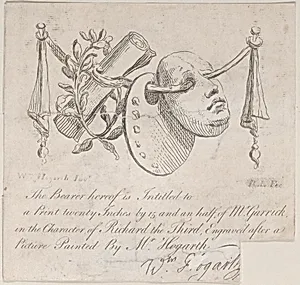 Wm Hogarth Invt
The Bearer hereof is Intitled to
a Print twenty Inches by 15 and an half, of Mr Garrick,
in the Character of Richard the Third, Engraved after a
Picture Painted By Mr Hogarth
Wm Hogarth